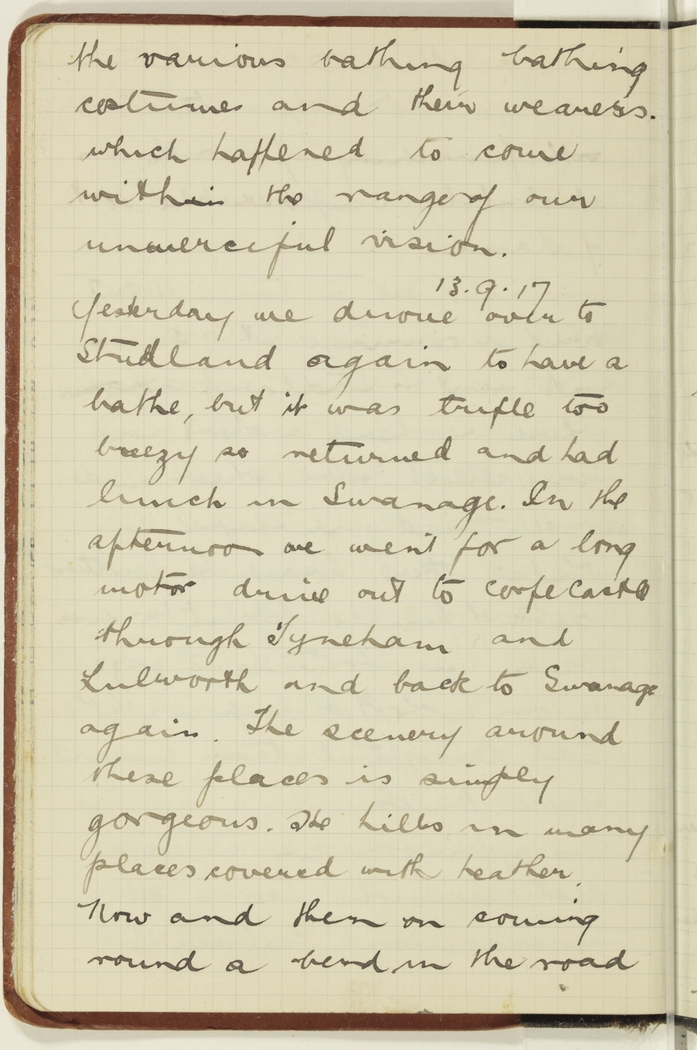 the various bathing bathing
costumes and their wearers.
which happened to come
within the range of our
unmerciful vision.
13.9.17
Yesterday we drove over to
Studland again to have a
bathe, but it was trifle too
breezy so returned and had
lunch in Swanage. In the
afternoon we went for a long
motor drive out to Corfe Castle
through Tyneham and
Lulworth and back to Swanage
again. The scenery around
these places is simply
gorgeous. The hills in many
places covered with heather.
Now and then on coming
round a bend in the road